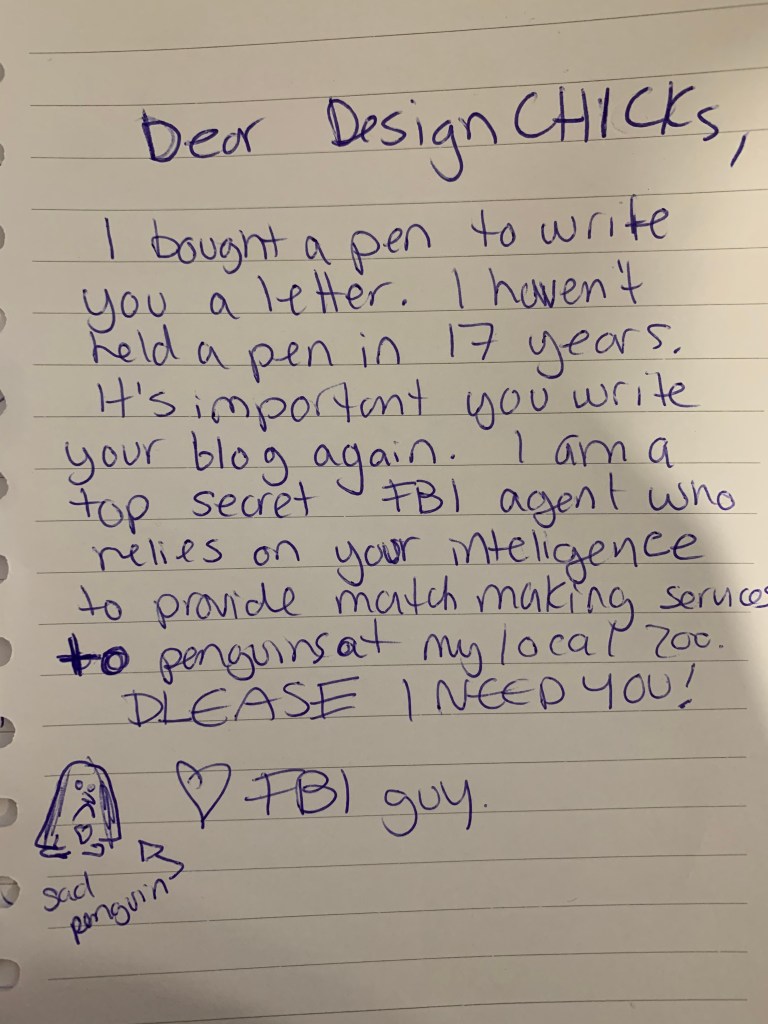 Dear Design CHICKs,
I bought a pen to write
you a letter. I haven't
held a pen in 17 years.
It's important you write
your blog again. I am a
top secret FBI agent who
relies on your inteligence
to provide match making services
to penguins at my local zoo.
PLEASE I NEED YOU!
♡ FBI guy.
sad
penguin